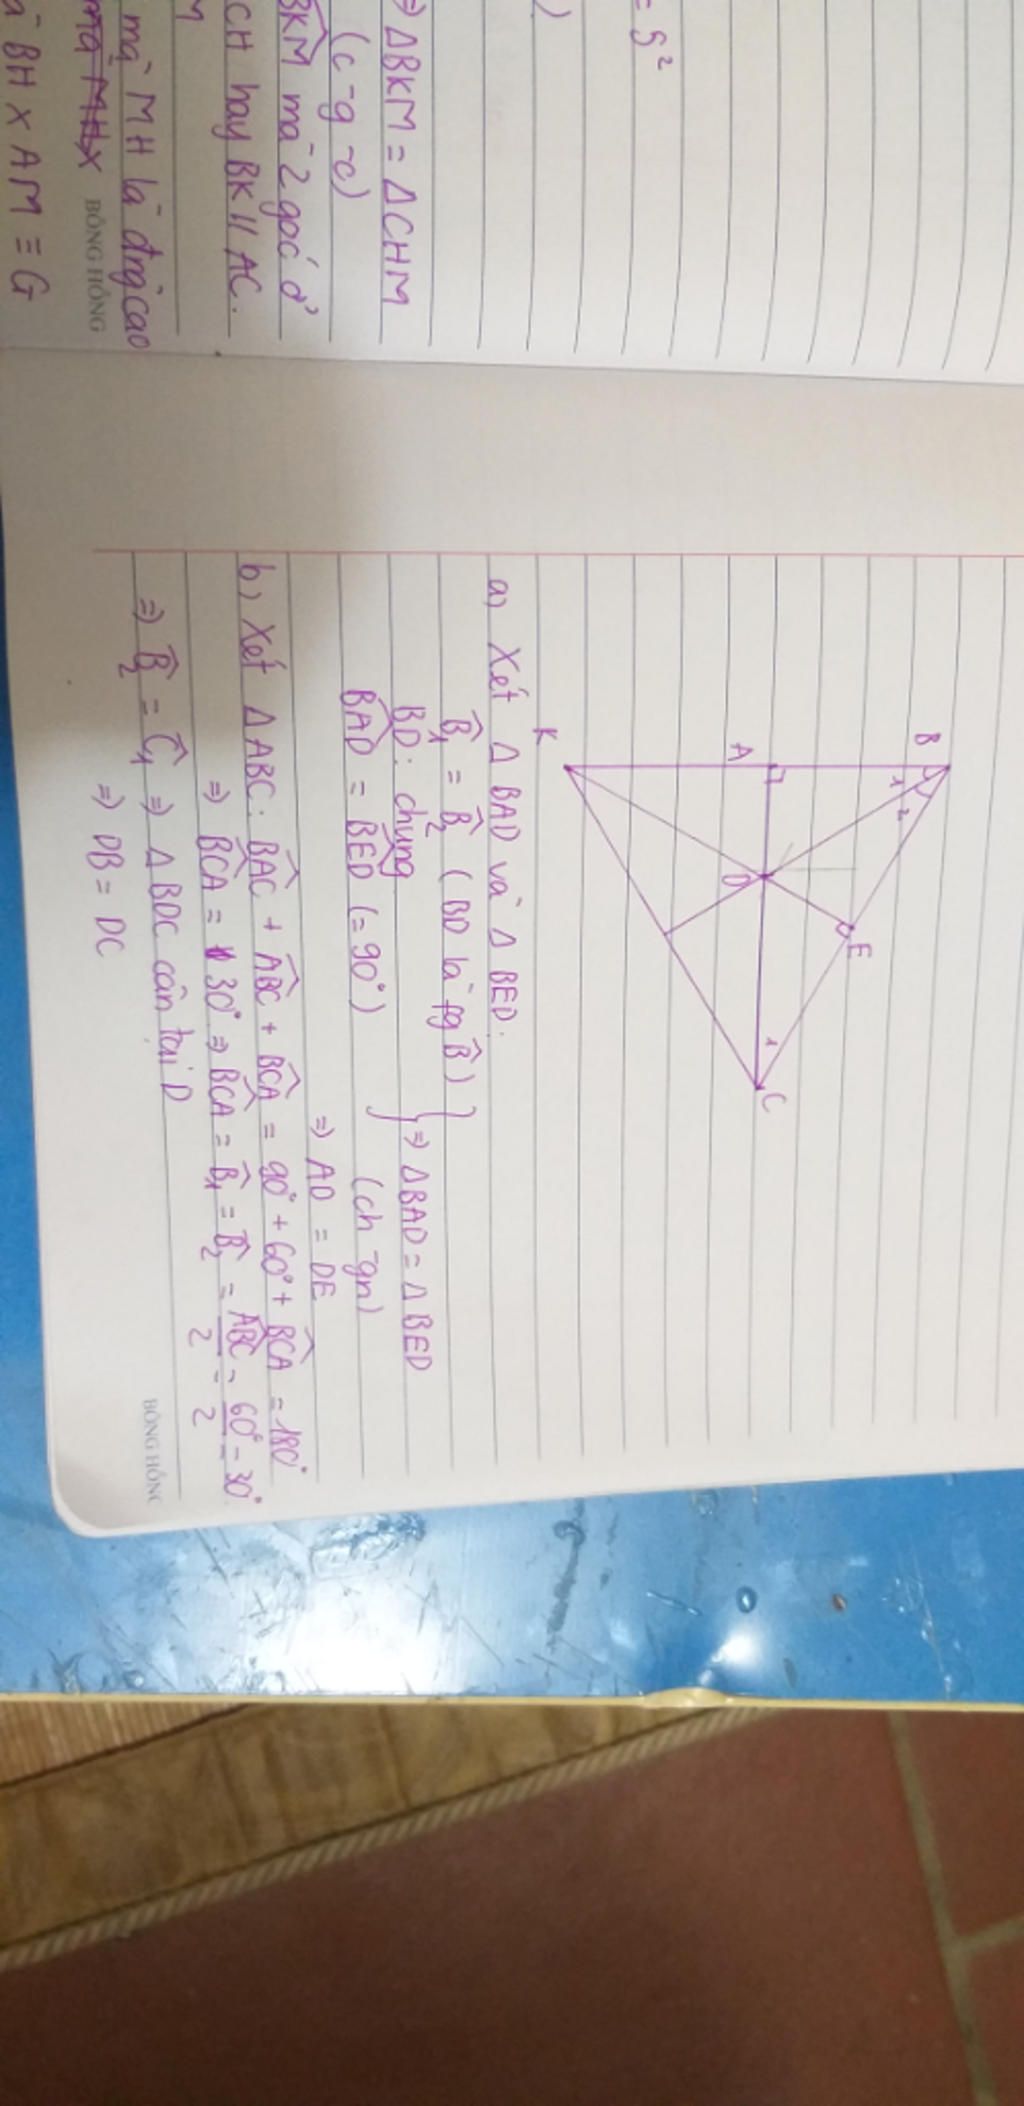 = S²
)
⇒ ΔBKM = ΔCHM
(c-g-c)
BKM mà 2 góc ở
CH hay BK // AC.
M
mà MH là đng cao
BÔNG HỒNG
à BH x AM ≡ G
B
1
2
A
D
E
1
C
K
a) Xét Δ BAD và Δ BED:
B̂1 = B̂2 (BD là pg B̂)
BD: chung
BAD = BED (= 90°)
⇒ ΔBAD = ΔBED
(ch-gn)
⇒ AD = DE
b) Xét ΔABC: BAC + ABC + BCA = 90° + 60° + BCA = 180°
⇒ BCA = 30° ⇒ BCA = B̂1 = B̂2 = ABC/2 = 60°/2 = 30°
⇒ B̂2 = Ĉ1 ⇒ ΔBDC cân tại D
⇒ DB = DC
BÔNG HỒNG